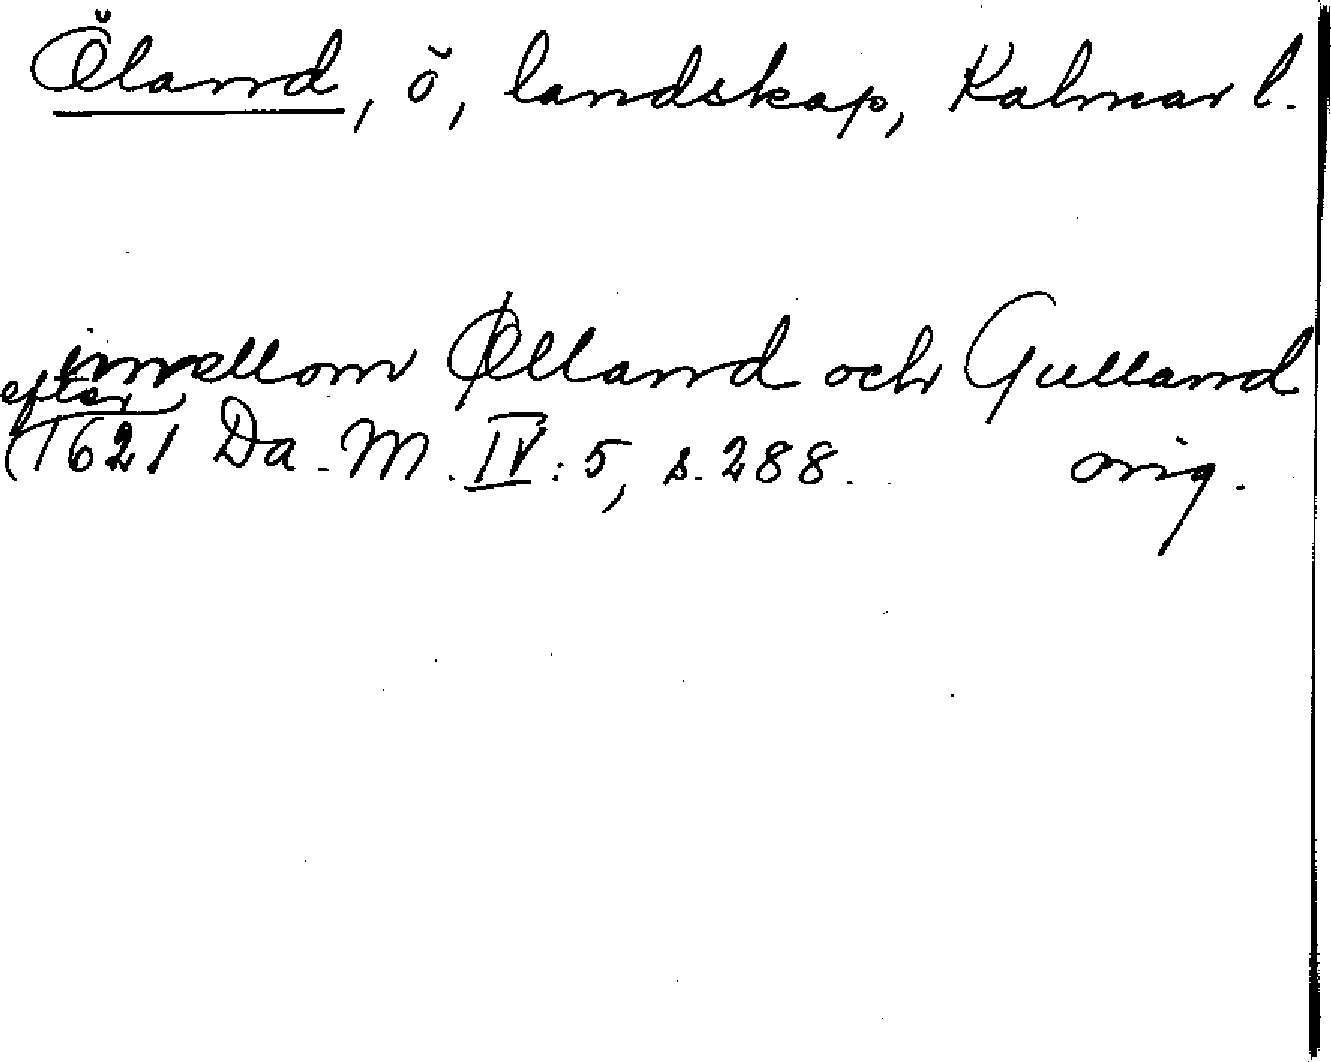 Öland, ö, landskap, Kalmar l.
imellom Ølland och Gulland
efter
(1621 Da. M. IV: 5, s. 288. orig.